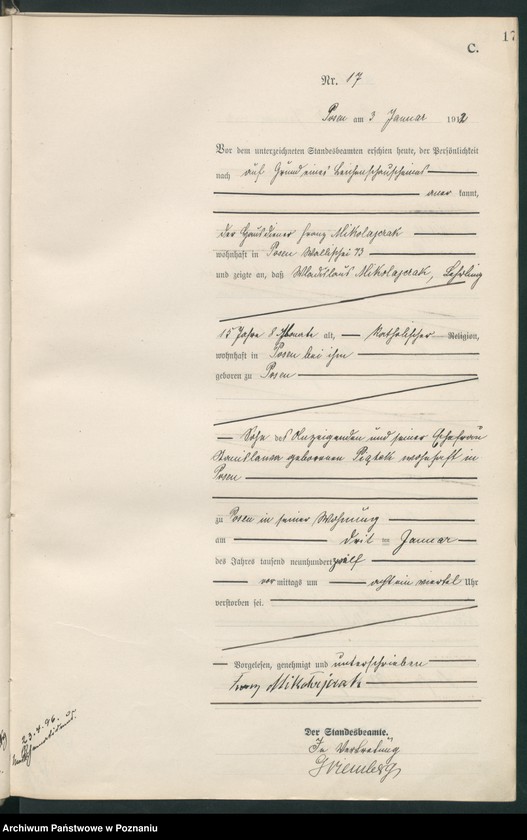 17
C.
Nr. 17
Posen am 3 Januar 1912
Vor dem unterzeichneten Standesbeamten erschien heute, der Persönlichkeit
nach auf Grund eines Leichenschauscheines
aner kannt,
der Hausdiener Franz Mikolajczak
wohnhaft in Posen Wallischei 73
und zeigte an, daß Wladislaus Mikolajczak, Lehrling
15 Jahre 8 Monate alt, katholischer Religion,
wohnhaft in Posen bei ihm
geboren zu Posen
Sohn des Anzeigenden und seiner Ehefrau
Stanislawa geborenen Piątek wohnhaft in
Posen
zu Posen in seiner Wohnung
am drit en Januar
des Jahres tausend neunhundert zwölf
vor mittags um acht ein viertel Uhr
verstorben sei.
Vorgelesen, genehmigt und unterschrieben
Franz Mikołajczak
Der Standesbeamte.
In Vertretung
23.4.96.
Archiwum Państwowe w Poznaniu